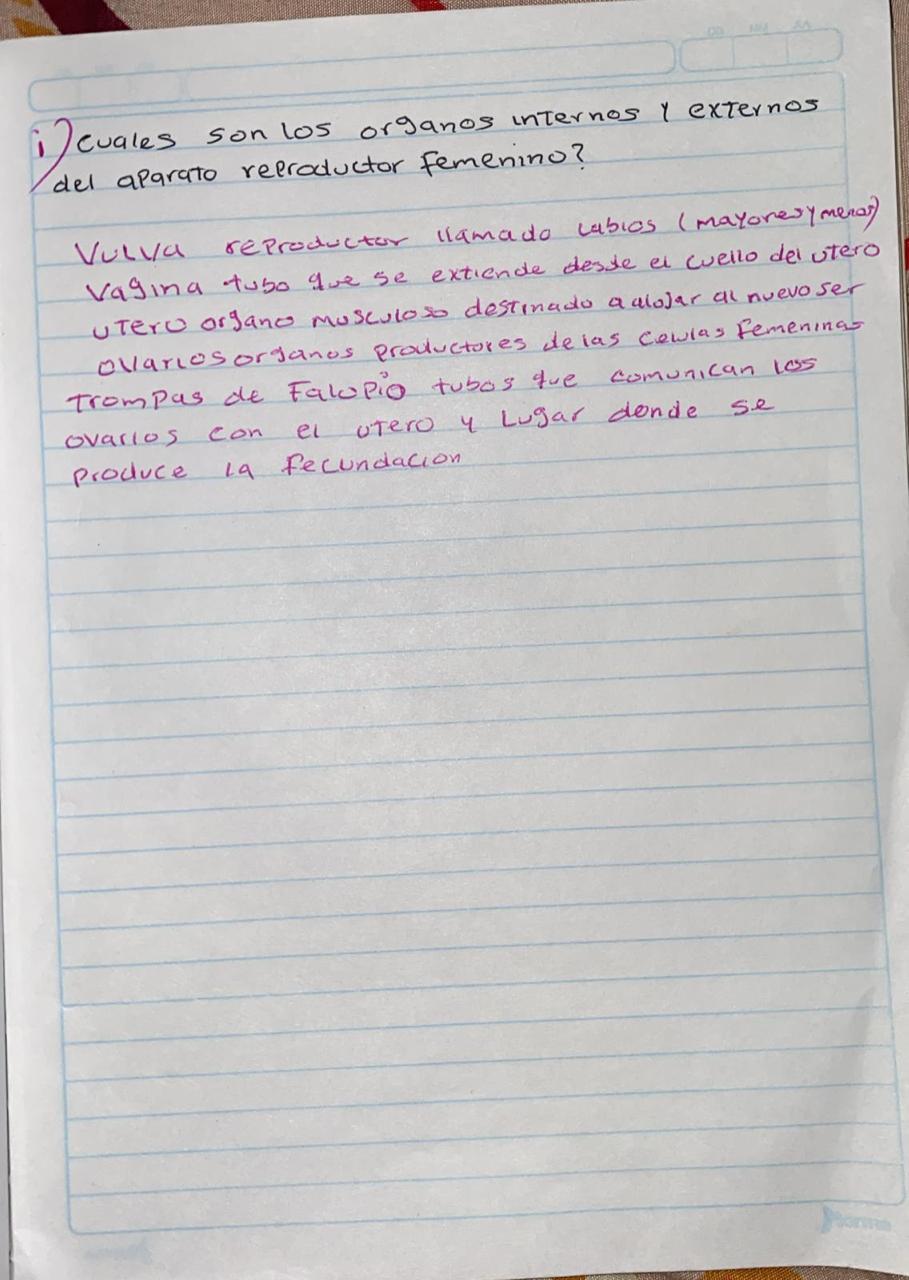 i) Cuales son los organos internos y externos
del aparato reproductor femenino?
Vulva reproductor llamado labios (mayores y menos)
Vagina tubo que se extiende desde el cuello del utero
utero organo musculoso destinado a alojar al nuevo ser
ovarios organos productores de las celulas femeninas
trompas de Falopio tubos que comunican los
ovarios con el utero y Lugar donde se
produce la fecundacion